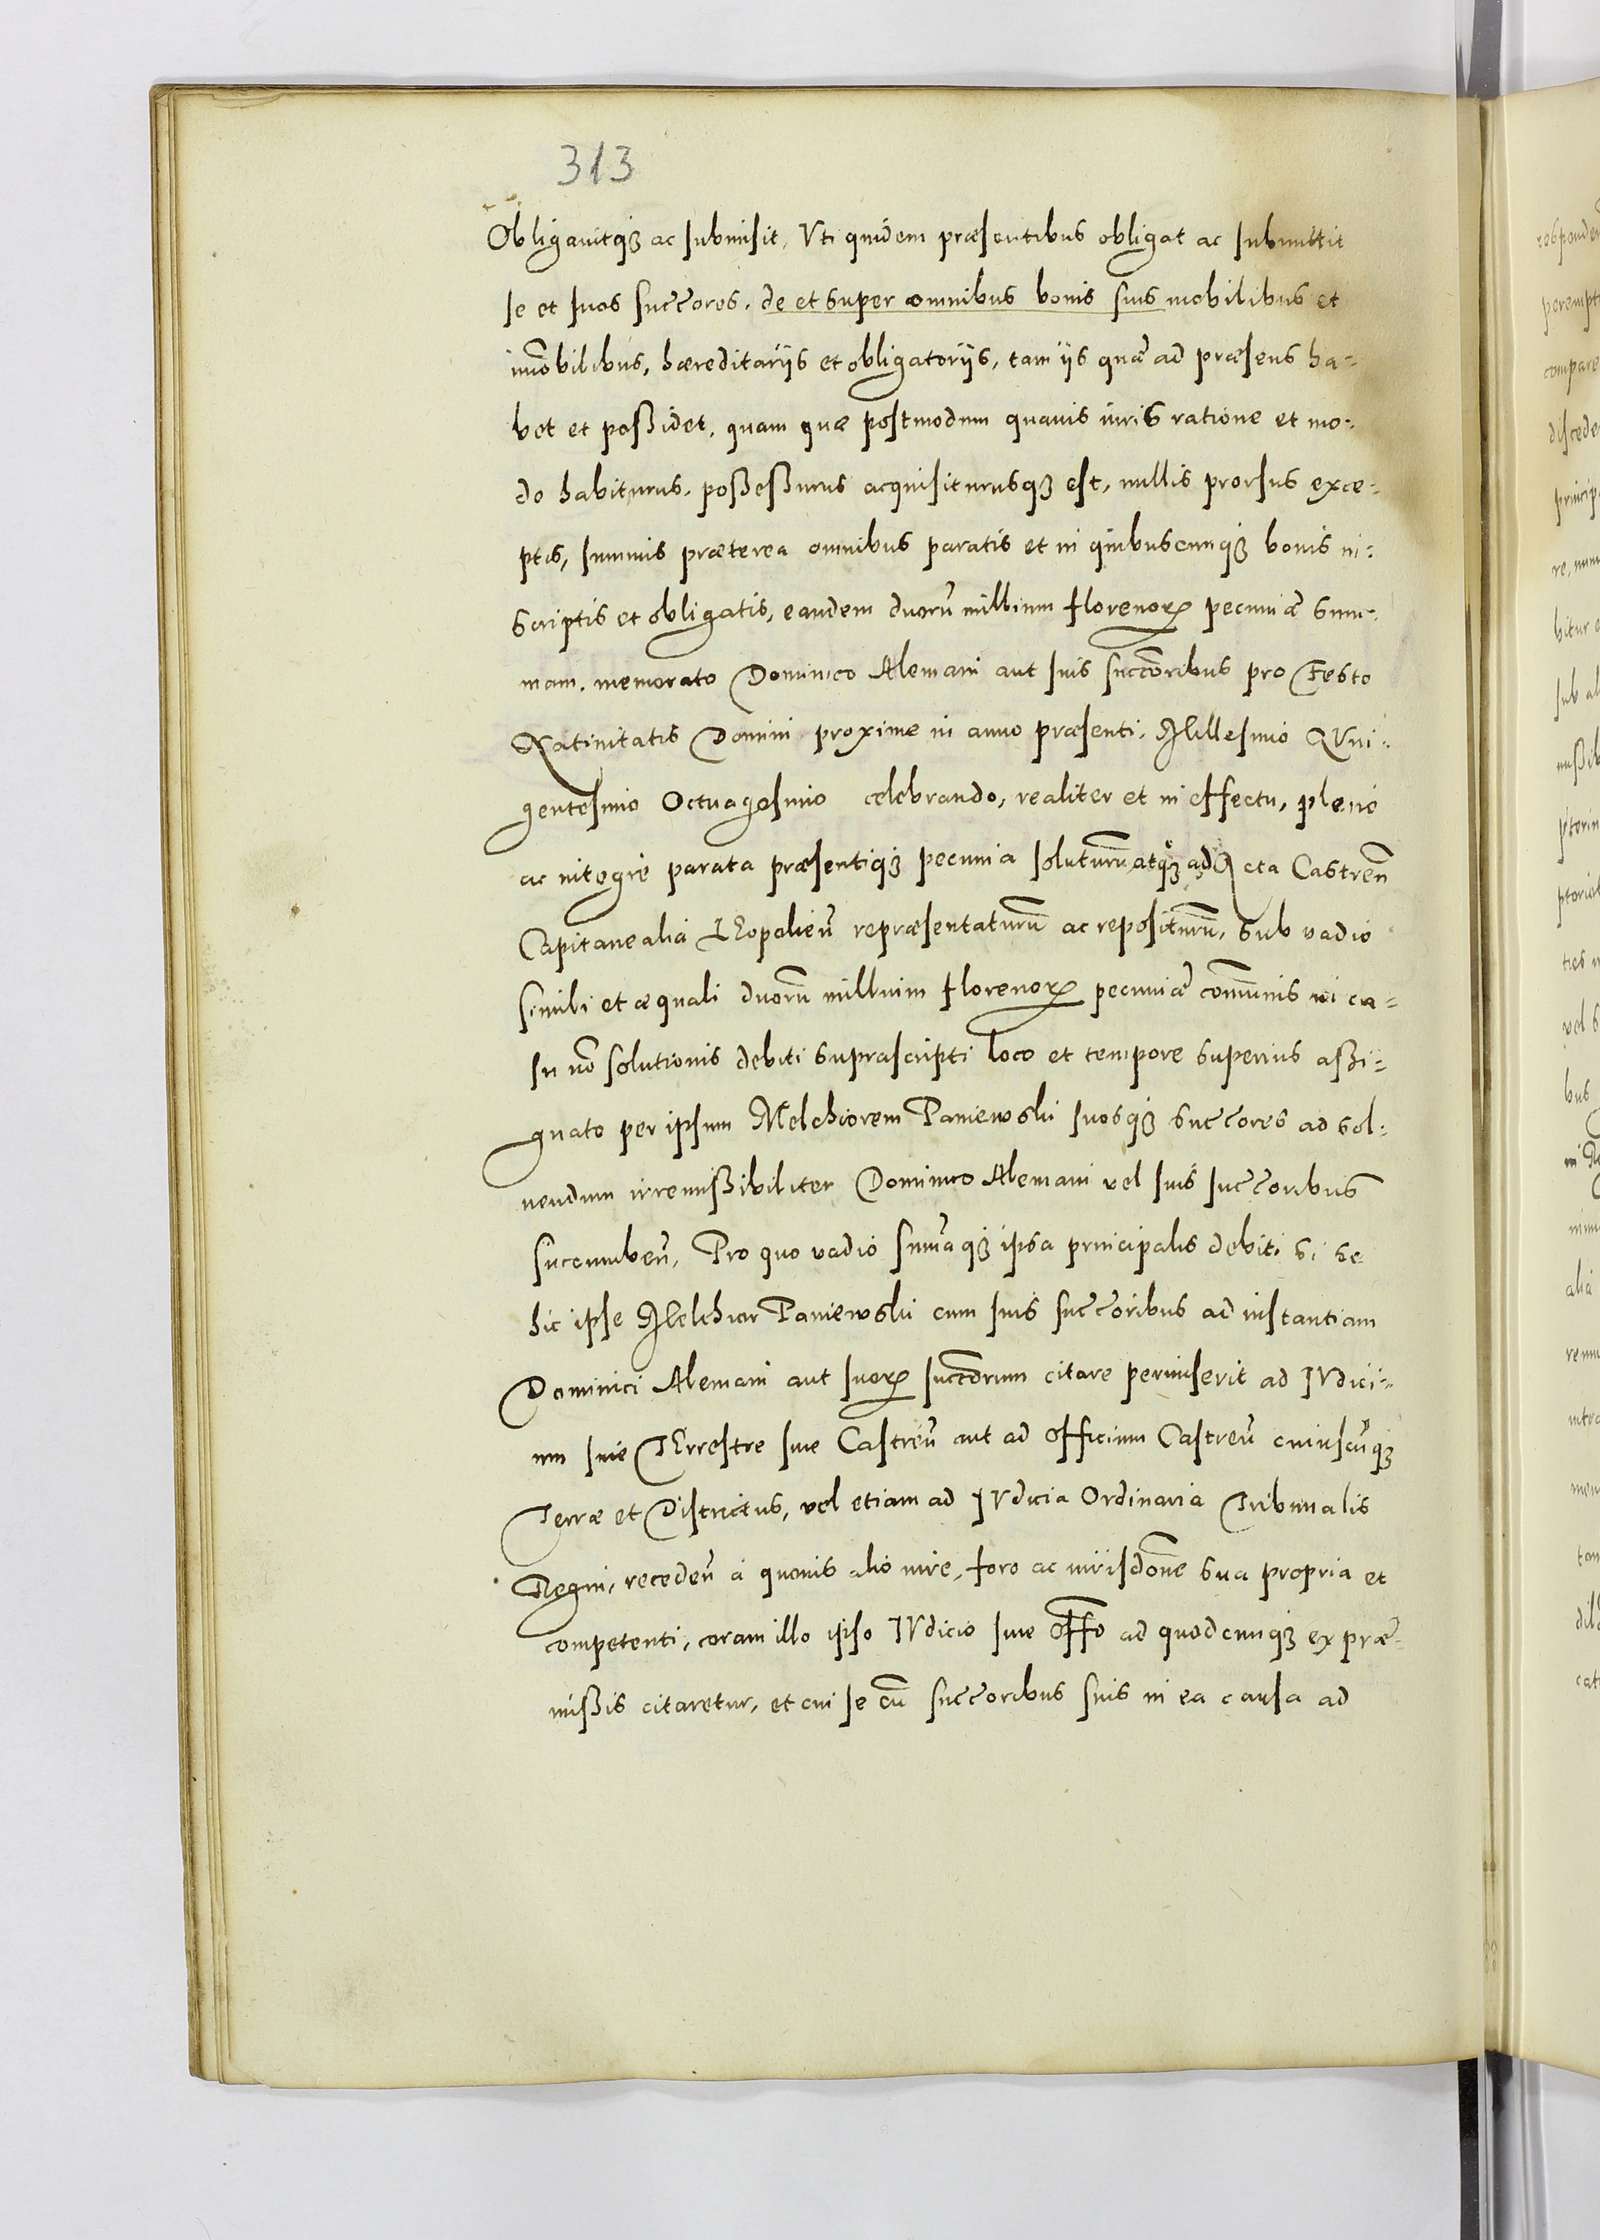 313
Obligavitqꝫ ac submisit, Vti quidem præsentibus obligat ac submittit
se et suos succores. de et super omnibus bonis suis mobilibus et
im̃obilibus, hæreditarijs et obligatorijs, tam ijs quæ ad præsens ha-
bet et possidet, quam quæ postmodum quauis iuris ratione et mo-
do habiturus, possessurus acquisiturusqꝫ est, nullis prorsus exce-
ptis, summis præterea omnibus paratis et in quibuscunqꝫ bonis in-
scriptis et obligatis, eandem duorũ millium florenoꝝ pecuniæ sum-
mam. memorato Dominico Alemani aut suis succoribus pro Festo
Natiuitatis Domini proxime in anno præsenti. Millesimo QVin-
gentesimo Octuagesimo celebrando, realiter et in effectu, plenè
ac integrè parata præsentiqꝫ pecunia soluturũ, atqꝫ ad Acta Castren̄
Capitanealia LEopolien̄ repræsentaturũ ac repositurũ, sub vadio
simili et æquali duorũ millium florenoꝝ pecuniæ com̃unis in ca-
su nõ solutionis debiti suprascripti loco et tempore superius assi-
gnato per ipsum Melchiorem Paniewski suosqꝫ succores ad sol-
uendum irremissibiliter Dominico Alemani vel suis succoribus
succumben̄, Pro quo vadio sum̃aqꝫ ipsa principalis debiti si se
hic ipse Melchior Paniewski cum suis succoribus ad instantiam
Dominici Alemani aut suoꝝ succorum citare permiserit ad IVdici-
um siue TErrestre siue Castren̄ aut ad officium Castren̄ cuiuscũqꝫ
Terræ et Districtus, vel etiam ad IVdicia Ordinaria Tribunalis
Regni, receden̄ à quouis alio iure, foro ac iurisdõne sua propria et
competenti, coram illo ipso IVdicio siue Offo ad quodcunqꝫ ex præ-
missis citaretur, et cui se cũ succoribus suis in ea causa ad